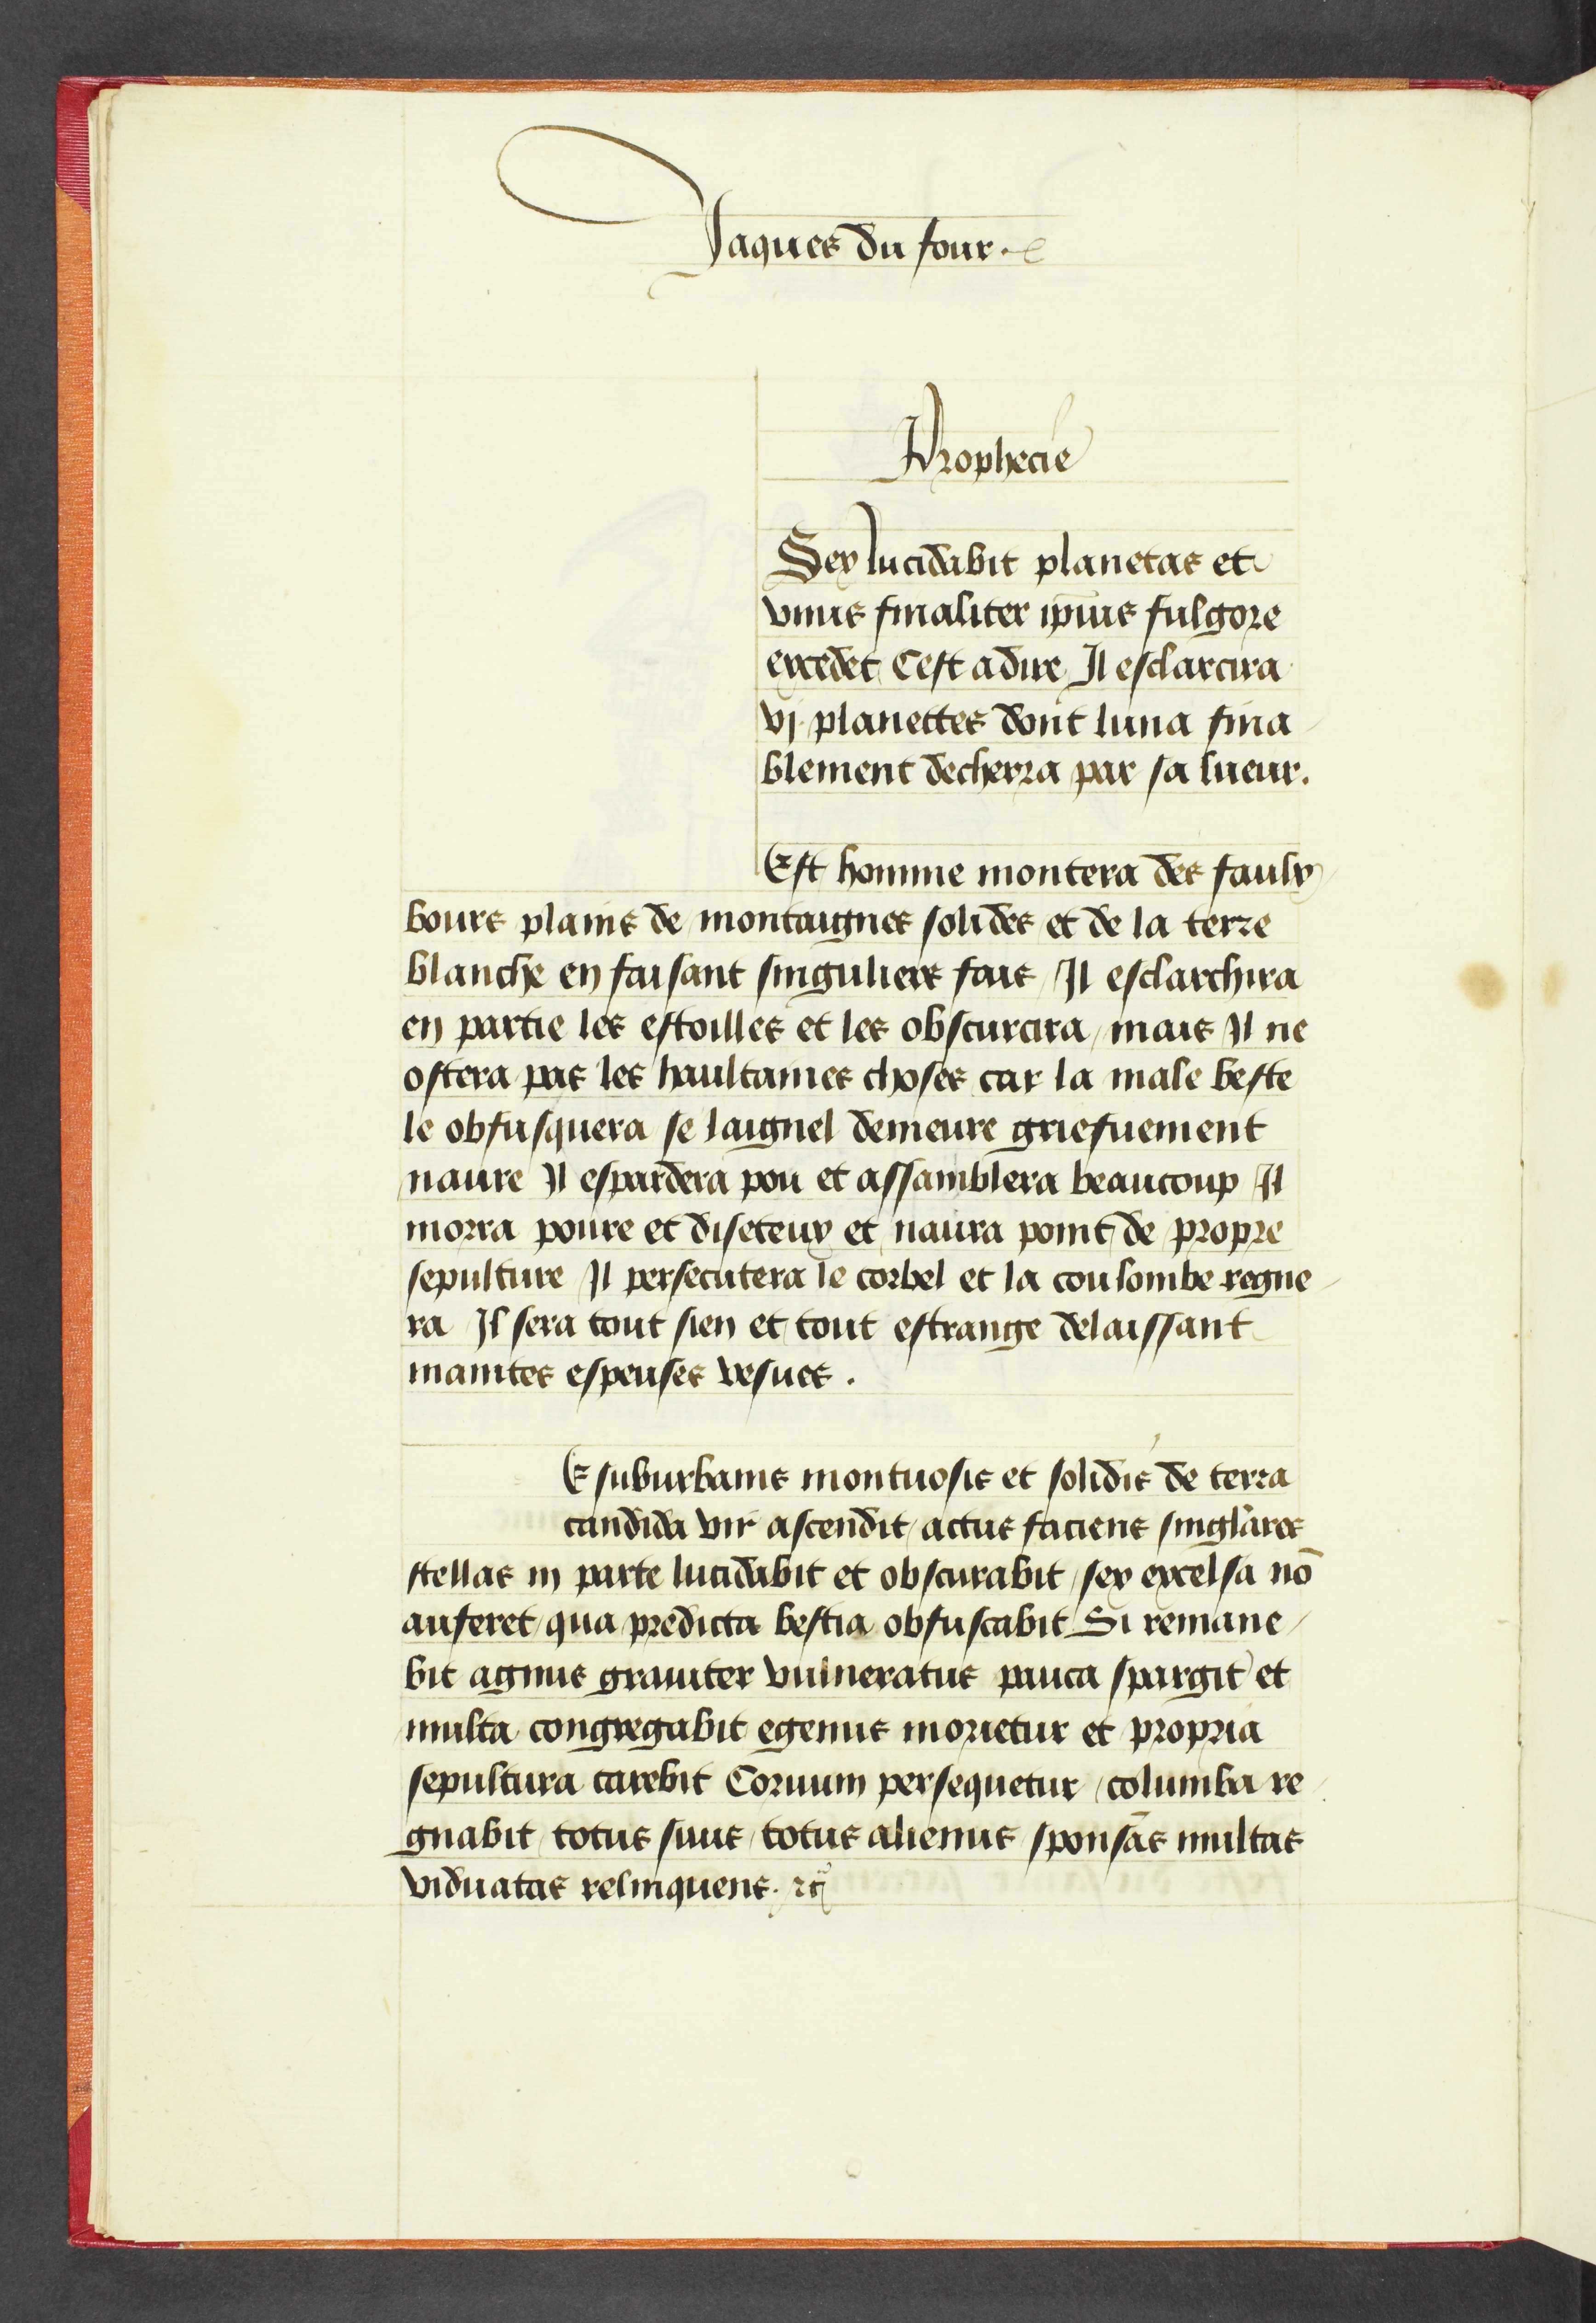 Jaques du four.
Prophecie
Sex lucidabit planetas et
vnus finaliter ip̄ius fulgore
excedet Cest adire Il esclarcira
vj planettes dont luna fina
blement decherra par sa lueur.
Est homme montera des faulx
bours plains de montaignes solides et de la terre
blanche en faisant singuliers fais Il esclarchira
en partie les estoilles et les obscurcira / mais Il ne
ostera pas les haultaines choses car la male beste
le obfusquera se laignel demeure griefuement
naure Il espardera pou et assamblera beaucoup Il
morra poure et diseteux et naura point de propre
sepulture Il persecutera le corbel et la coulombe regne
ra Il sera tout sien et tout estrange delaissant
maintes espeuses vesues .
E suburbanis montuosis et solidis de terra
candida vir ascendit / actus faciens singlares
stellas in parte lucidabit et obscurabit / sex excelsa nō
auferet / qua predicta bestia obfuscabit Si remane
bit agnus grauiter vulneratus pauca spargit et
multa congregabit egenus morietur et propria
sepultura carebit Coruum persequetur / columba re
gnabit / totus suus / totus alienus sponsas multas
viduatas relinquens.